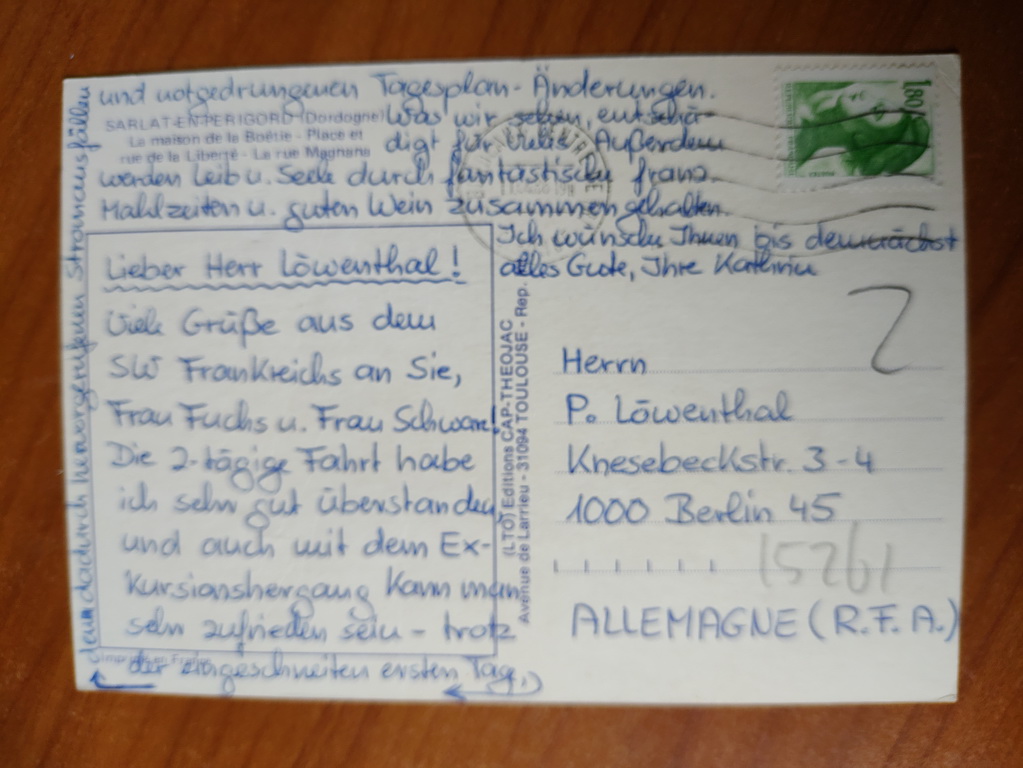 Lieber Herr Löwenthal!
Viele Grüße aus dem
SW Frankreichs an Sie,
Frau Fuchs u. Frau Schwarz!
Die 2-tägige Fahrt habe
ich sehr gut überstanden
und auch mit dem Ex-
kursionshergang kann man
sehr zufrieden sein - trotz
der eingeschneiten ersten Tag,
den dadurch hervorgerufenen Stromausfällen
und notgedrungenen Tagesplan-Änderungen.
Was wir sehen, entschä-
digt für Vieles. Außerdem
werden Leib u. Seele durch fantastische franz.
Mahlzeiten u. guten Wein zusammengehalten.
Ich wünsche Ihnen bis demnächst
alles Gute, Ihre Kathrin
SARLAT-EN-PERIGORD (Dordogne)
La maison de la Boëtie - Place et
rue de la Liberté - La rue Magnana
(LTOT) Editions CAP-THEOJAC
Avenue de Larrieu - 31094 TOULOUSE - Rep.
1,80
Herrn
P. Löwenthal
Knesebeckstr. 3-4
1000 Berlin 45
15261
ALLEMAGNE (R.F.A.)
2